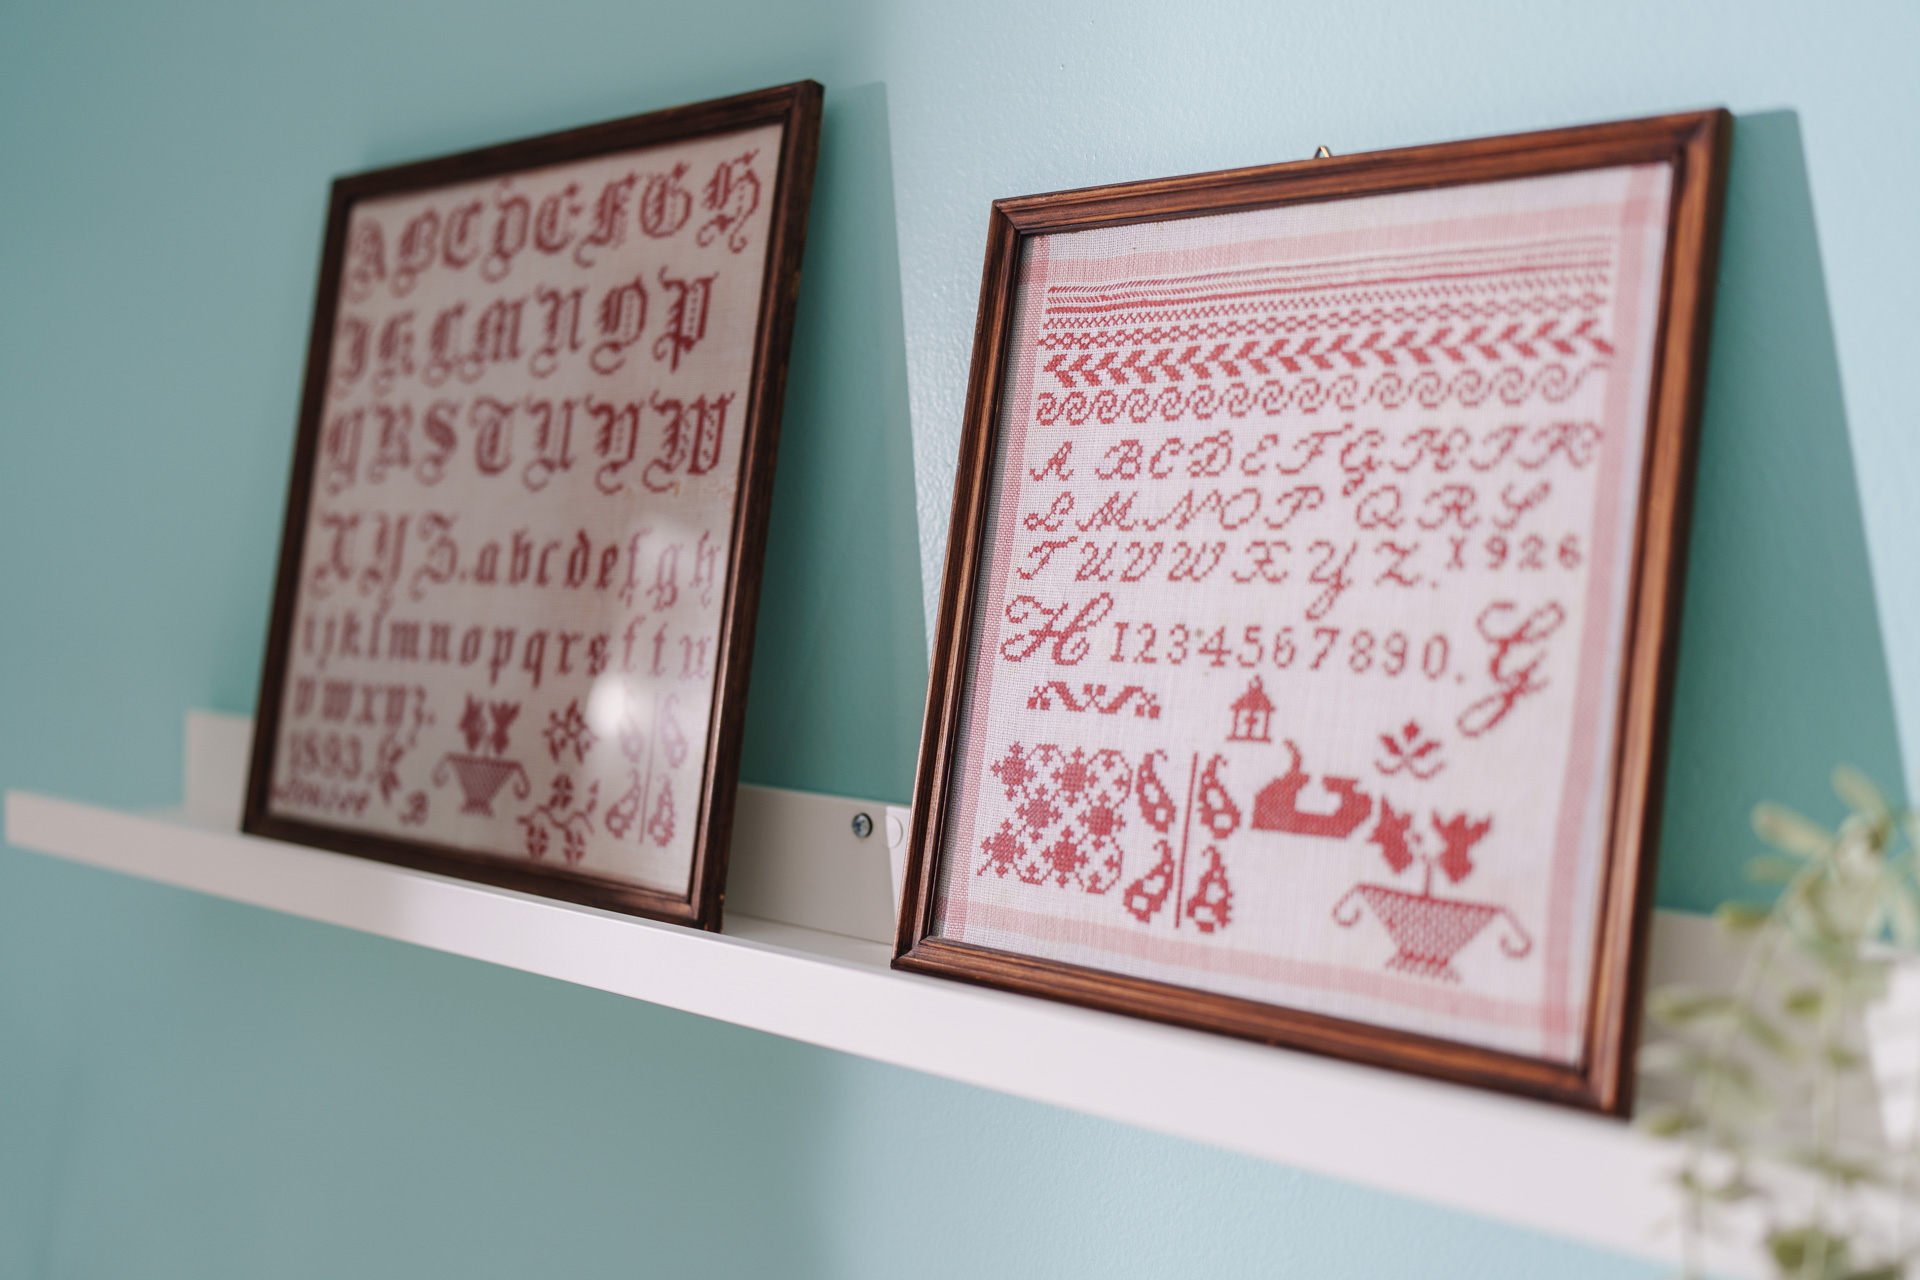 A B C D E F G H
I K L M N O P
Q R S T U V W
X Y Z. a b c d e f g h
i j k l m n o p q r s f t u
v w x y z.
1893.
B
A B C D E F G H I K
L M N O P Q R S
T U V W X Y Z. 1926
H 1234567890. G